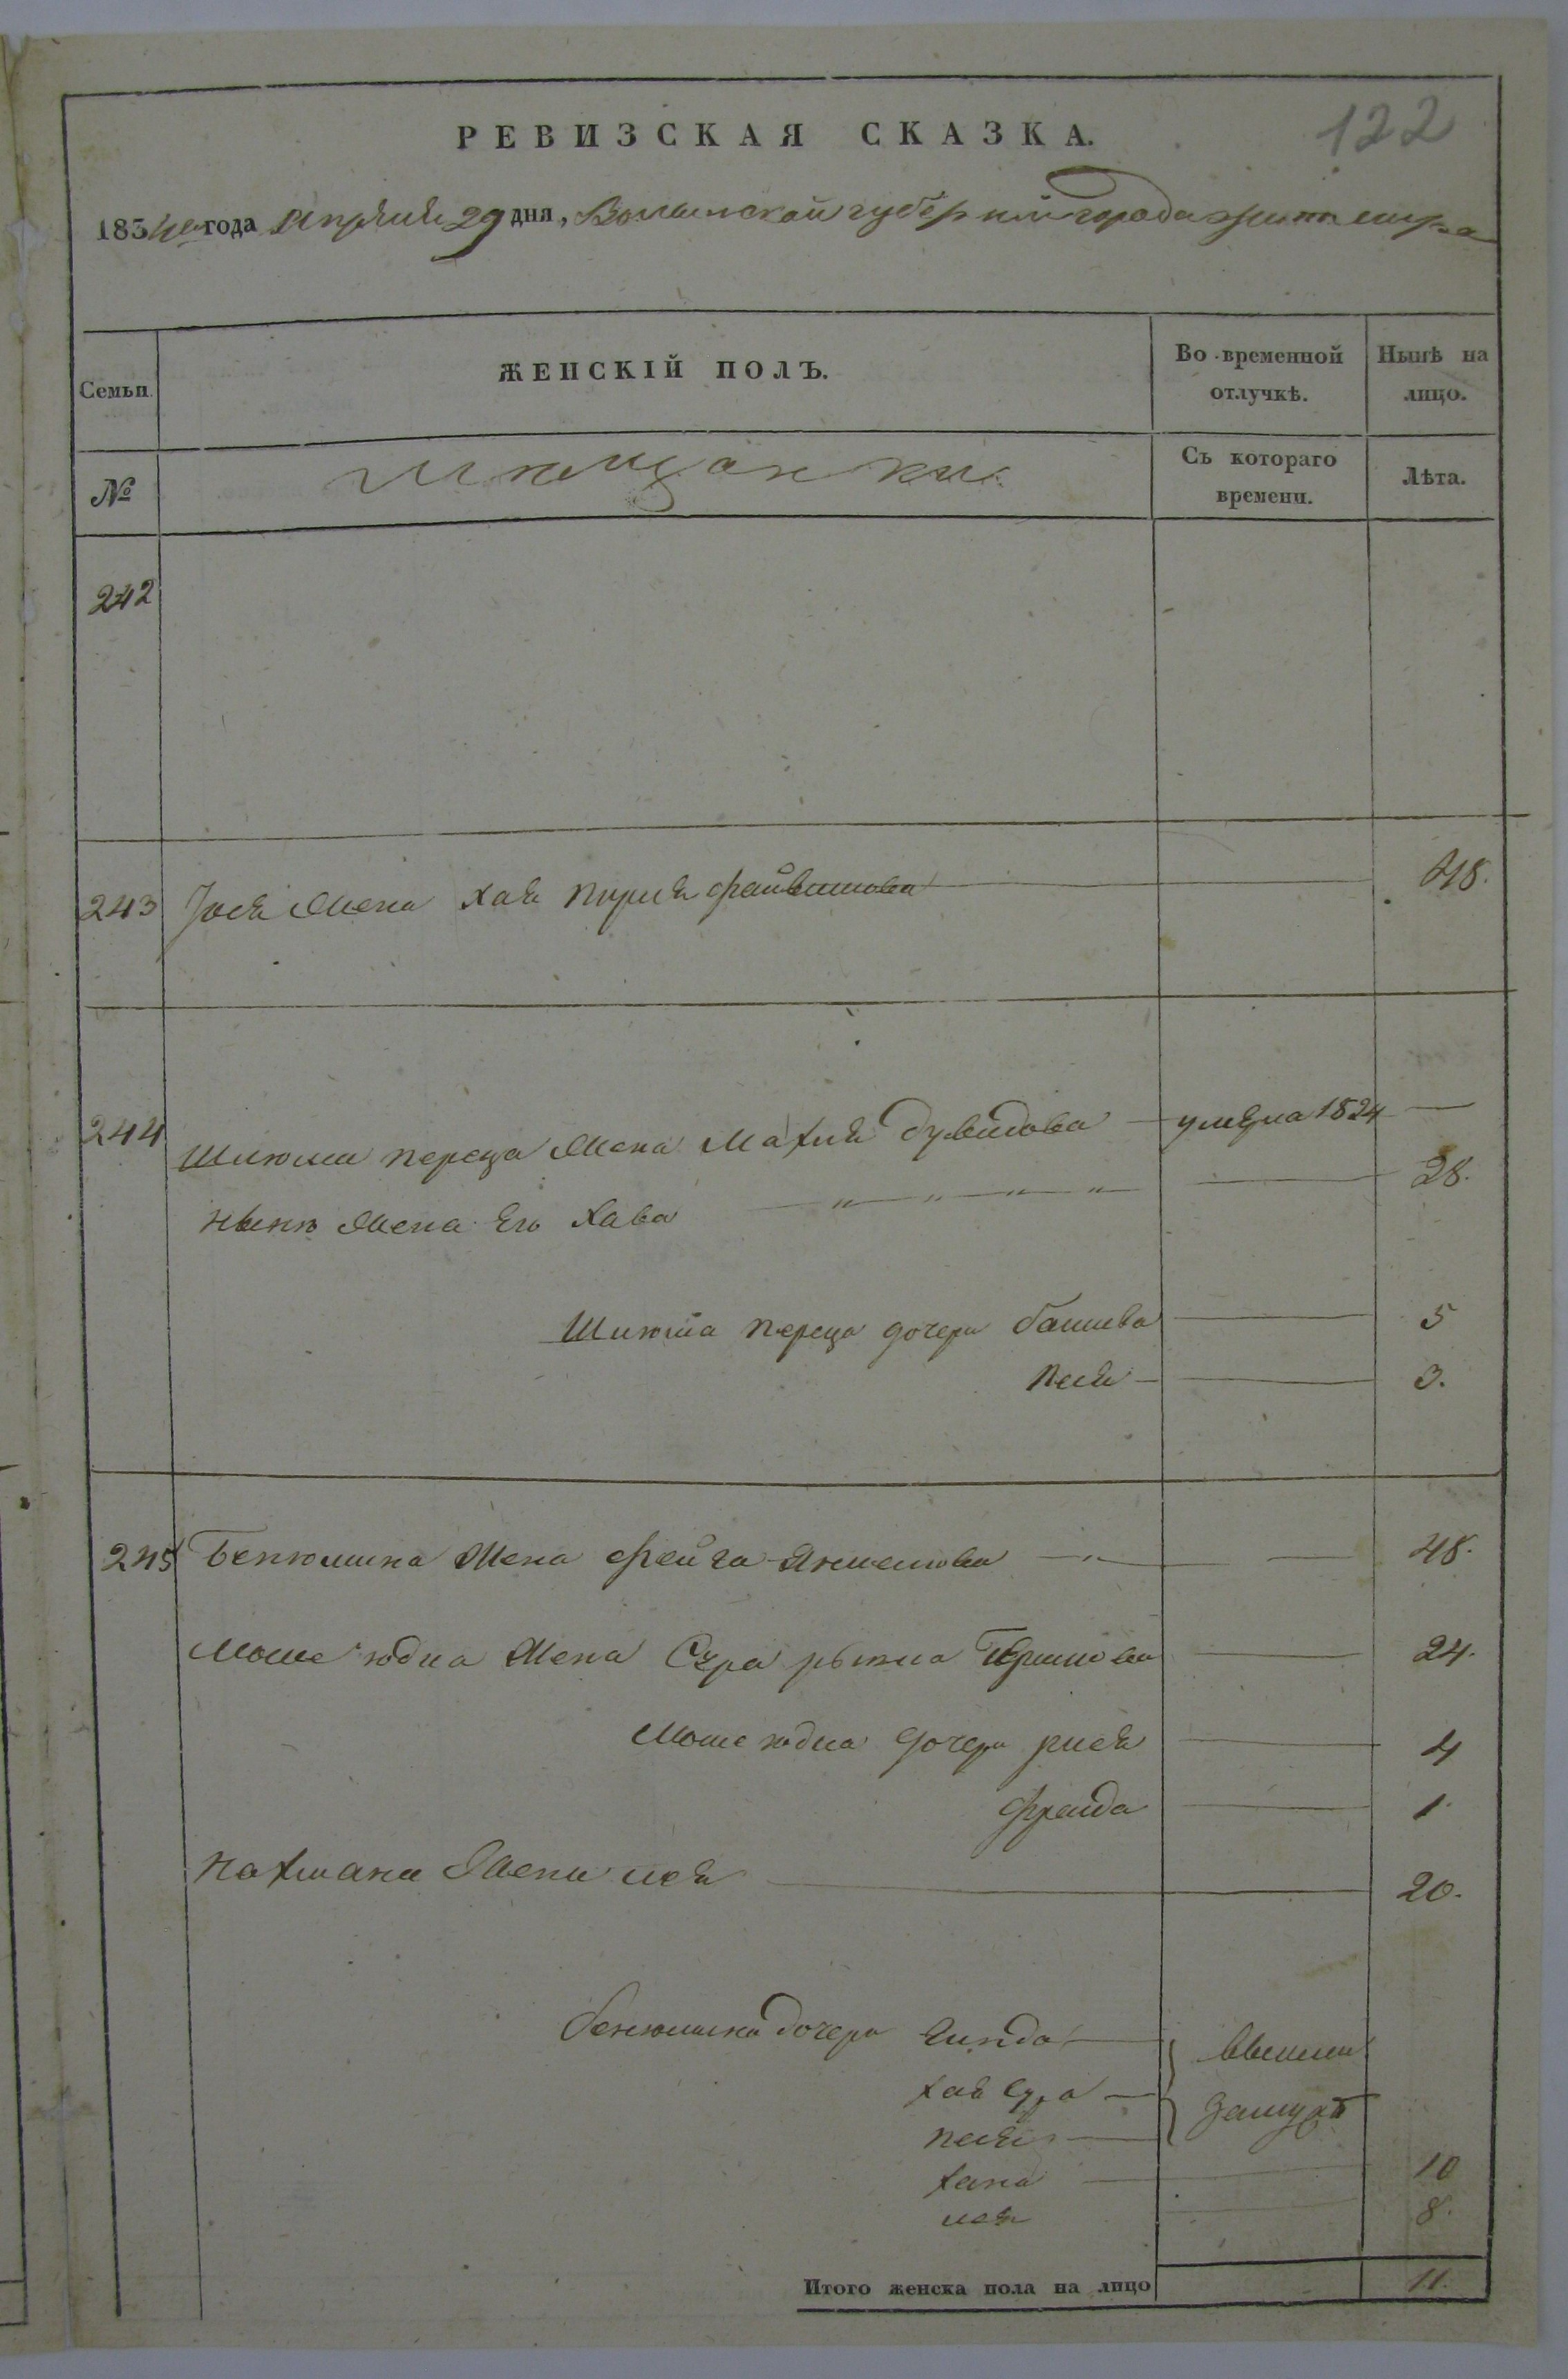 122
РЕВИЗСКАЯ СКАЗКА.
1834го года Апреля 29 дня, Волынской губерніи города Житомира
Семьи
ЖЕНСКІЙ ПОЛЪ.
Во временной отлучкѣ.
Нынѣ на лицо.
№
Мещанки
Съ котораго времени.
Лѣта.
242
243 Іося жена Хая Перля Файвишова 48.
244 Шлиома Переца жена Махля Дувидова умерла 1824 —
нынѣ жена его Хава — „ — „ — „ — „ — 28.
Шлиома Переца дочери башева 5
песя 3.
245 Бенюмина жена Фейга Янкелиова — „ — 48.
Моше юдка жена Сура рыкла Гершкова 24.
Моше юдка дочери рися 4
фрейда 1.
Нахмана жена лея 20.
бенюмина дочери гинда } вышли
хая сура } замужъ
песя }
хана 10
лея 8.
Итого женска пола на лицо 11.